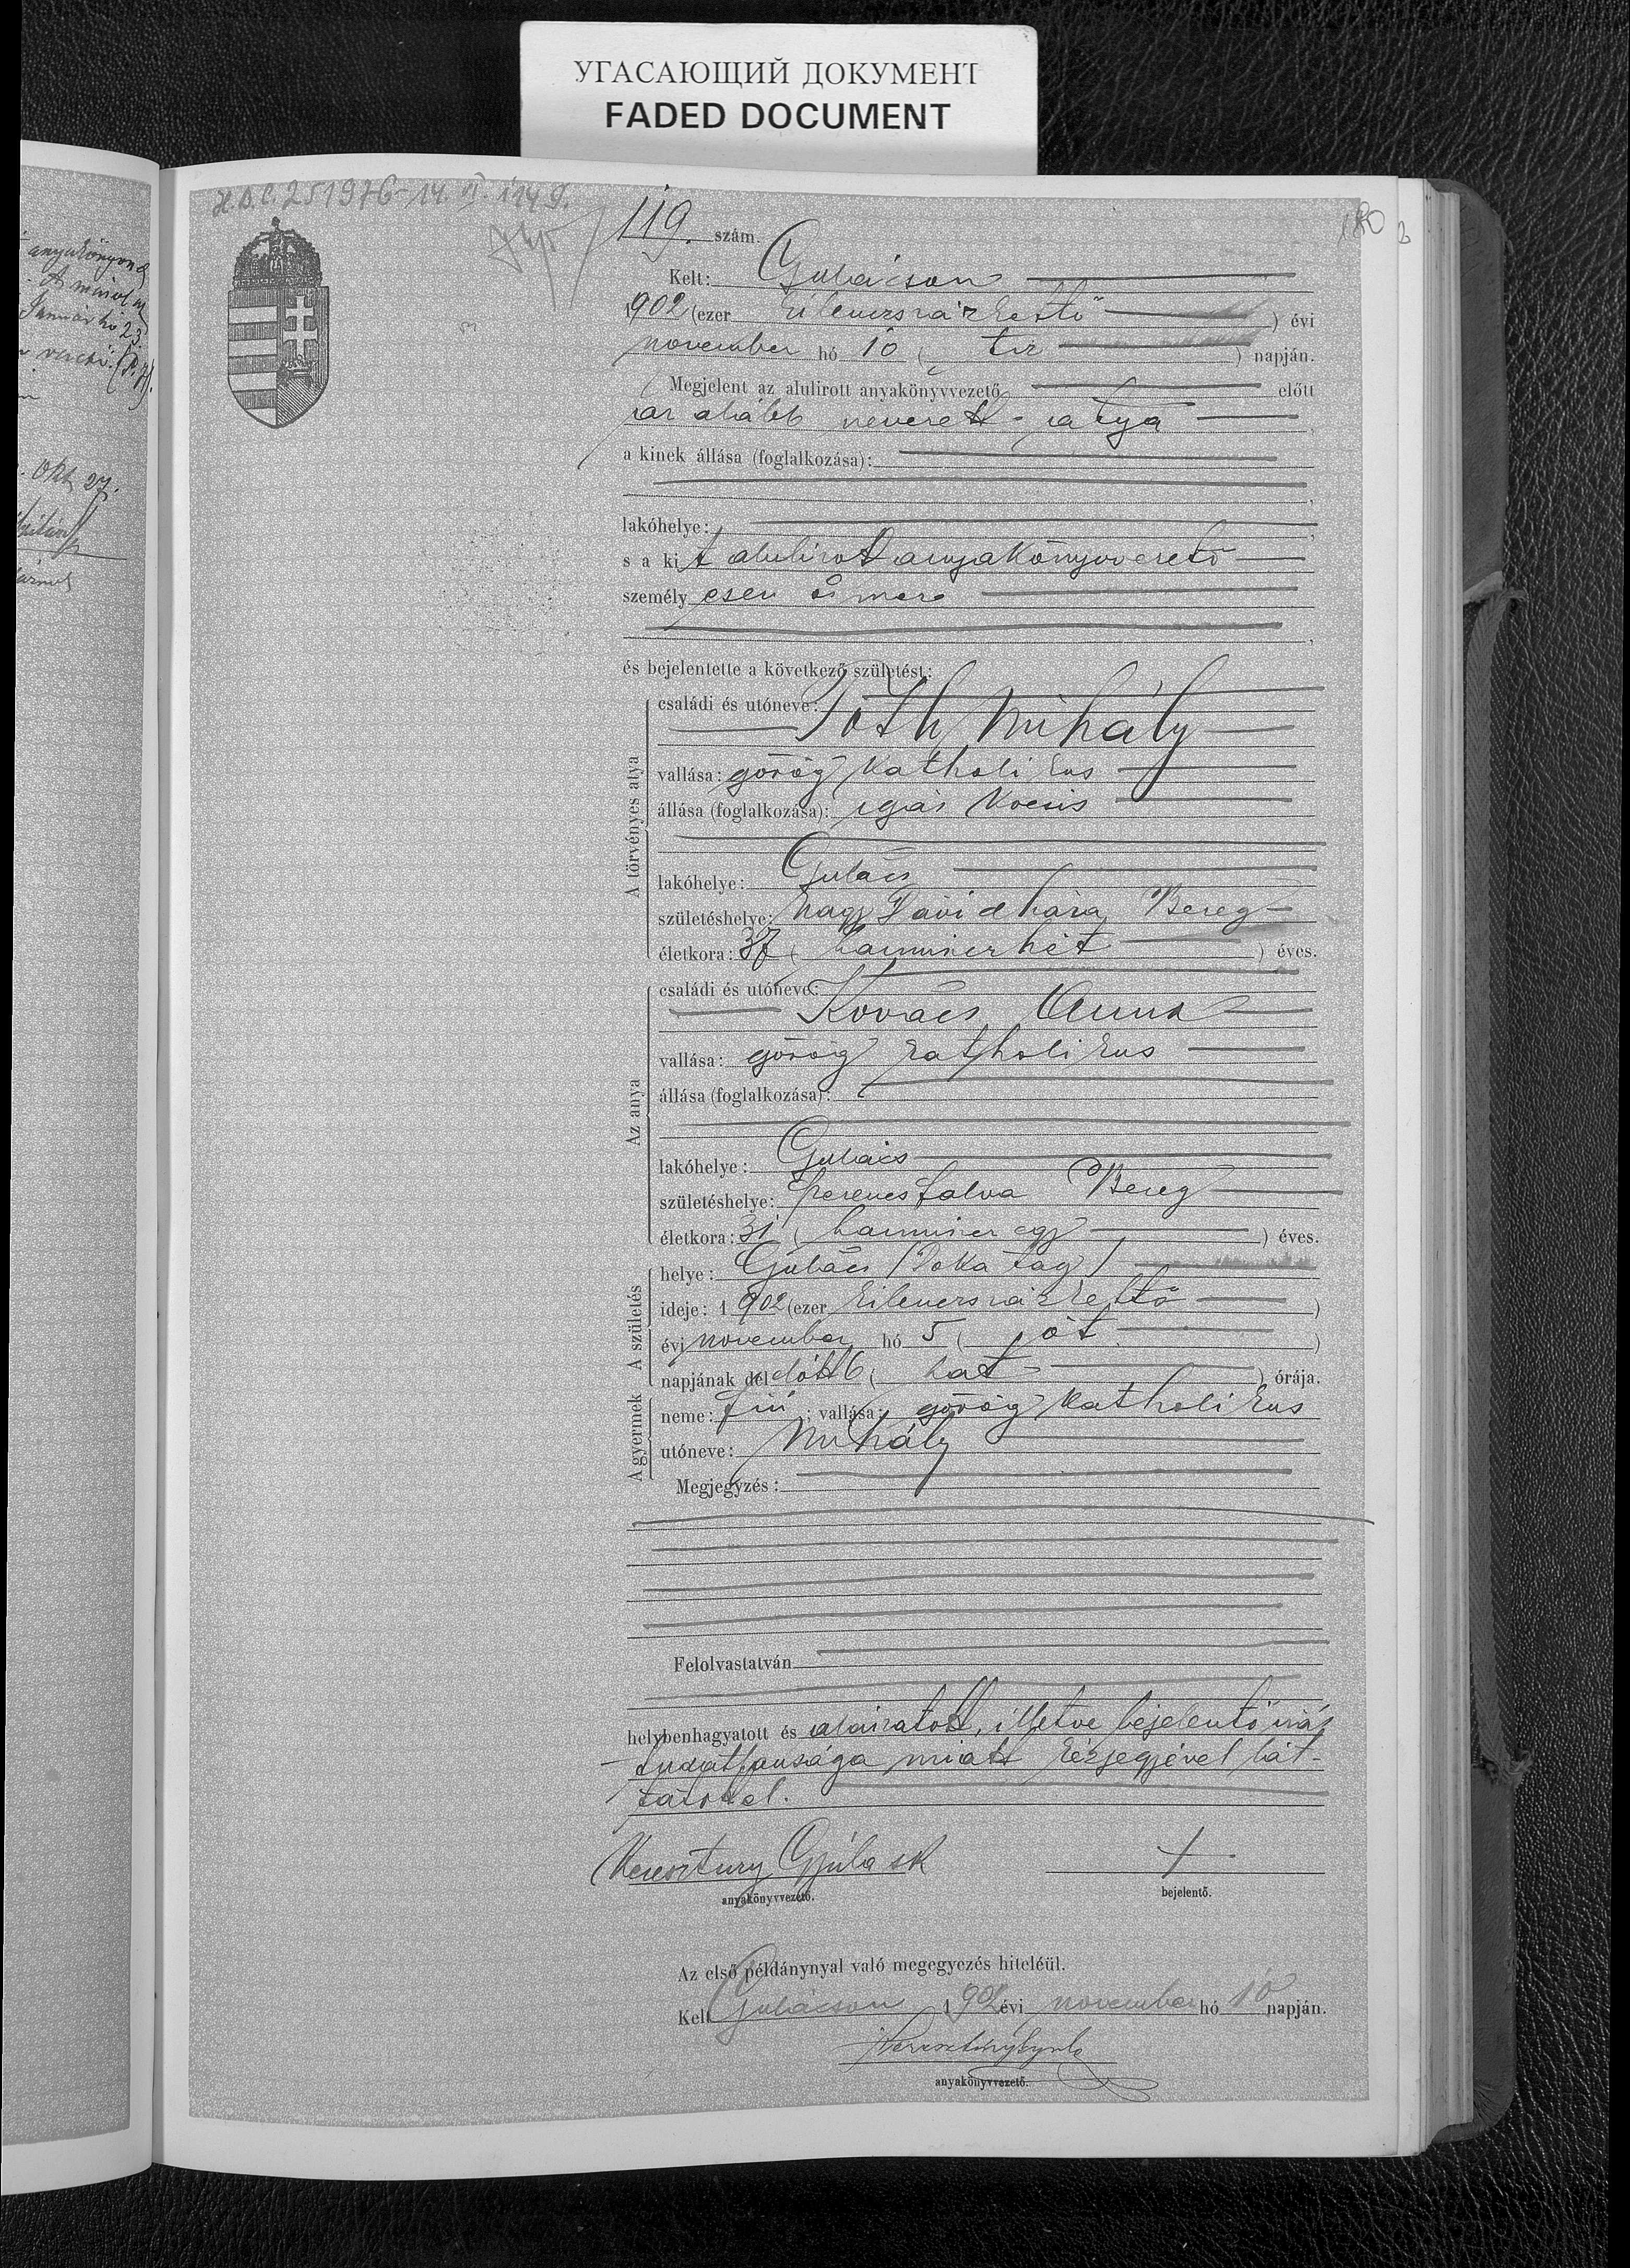 УГАСАЮЩИЙ ДОКУМЕНТ
FADED DOCUMENT
119. szám.
Kelt: Gulácson
1902 (ezer kilenczszázkettő) évi
november hó 10 (tiz) napján.
Megjelent az alulirott anyakönyvvezető előtt
az alább nevezett atya
a kinek állása (foglalkozása):
lakóhelye:
s a kit alulirott anyakönyvvezető
személyesen ismere
és bejelentette a következő születést:
A törvényes atya
családi és utóneve:
Tóth Mihály
vallása: görög katholikus
állása (foglalkozása): igás kocsis
lakóhelye: Gulács
születéshelye: Nagy Dávidháza Bereg
életkora: 37 (harminczhét) éves.
Az anya
családi és utóneve:
Kovács Anna
vallása: görög katholikus
állása (foglalkozása):
lakóhelye: Gulács
születéshelye: Ferencsfalva Bereg
életkora: 31 (harminczegy) éves.
A születés
helye: Gulács (Dókatag)
ideje: 1902 (ezer kilenczszázkettő)
évi november hó 5 (öt)
napjának délelőtt 6 (hat) órája.
A gyermek
neme: fiú; vallása: görög katholikus
utóneve: Mihály
Megjegyzés:
Felolvastatván
helybenhagyatott és aláiratott, illetve bejelentő irás
tudatlansága miatt kézjegyével lát-
tatott el.
Keresztury Gyula sk +
anyakönyvvezető. bejelentő.
Az első példánynyal való megegyezés hiteléül.
Kelt Gulácson 1902 évi november hó 10 napján.
Keresztury Gyula
anyakönyvvezető.